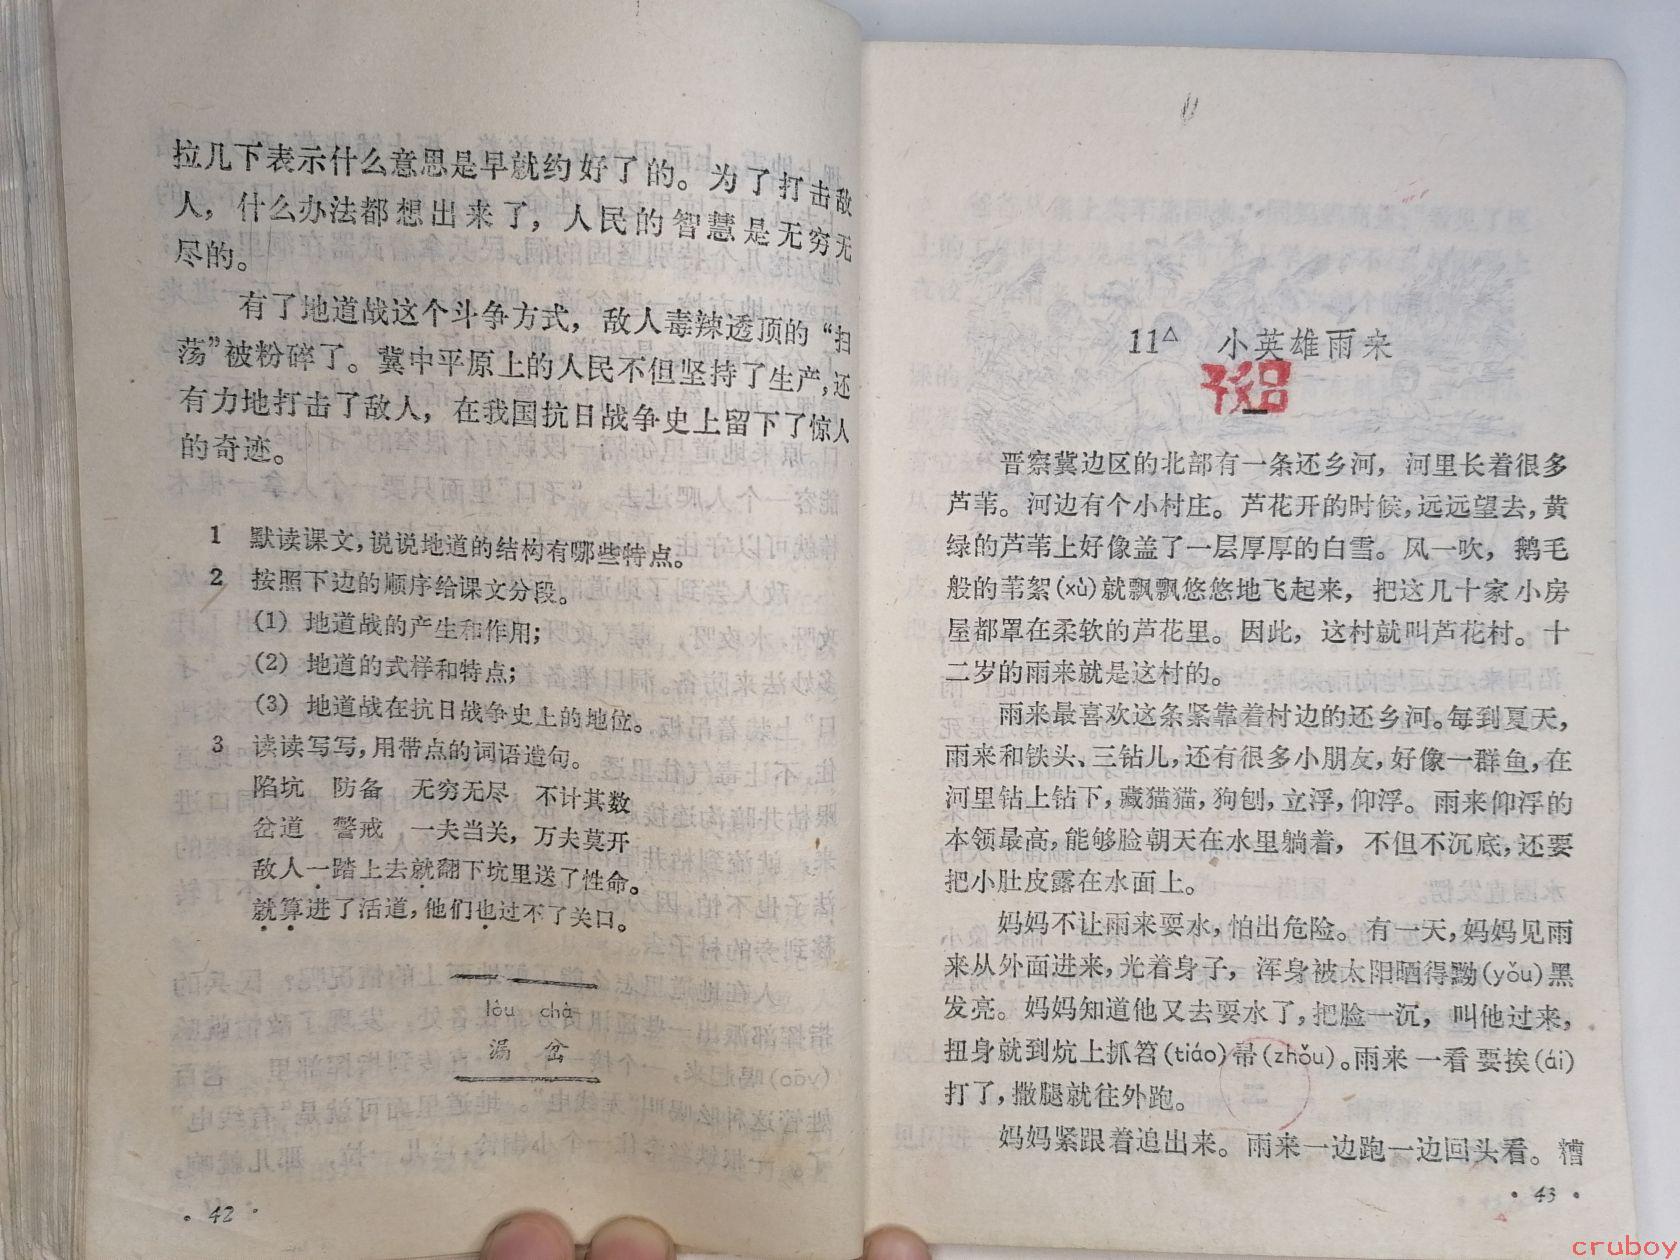 拉几下表示什么意思是早就约好了的。为了打击敌
人，什么办法都想出来了，人民的智慧是无穷无
尽的。
有了地道战这个斗争方式，敌人毒辣透顶的“扫
荡”被粉碎了。冀中平原上的人民不但坚持了生产，还
有力地打击了敌人，在我国抗日战争史上留下了惊人
的奇迹。
1 默读课文，说说地道的结构有哪些特点。
2 按照下边的顺序给课文分段。
(1) 地道战的产生和作用；
(2) 地道的式样和特点；
(3) 地道战在抗日战争史上的地位。
3 读读写写，用带点的词语造句。
陷坑 防备 无穷无尽 不计其数
岔道 警戒 一夫当关，万夫莫开
敌人一踏上去就翻下坑里送了性命。
就算进了活道，他们也过不了关口。
lòu chà
漏 岔
· 42 ·
11△ 小英雄雨来
一
晋察冀边区的北部有一条还乡河，河里长着很多
芦苇。河边有个小村庄。芦花开的时候，远远望去，黄
绿的芦苇上好像盖了一层厚厚的白雪。风一吹，鹅毛
般的苇絮(xù)就飘飘悠悠地飞起来，把这几十家小房
屋都罩在柔软的芦花里。因此，这村就叫芦花村。十
二岁的雨来就是这村的。
雨来最喜欢这条紧靠着村边的还乡河。每到夏天，
雨来和铁头、三钻儿，还有很多小朋友，好像一群鱼，在
河里钻上钻下，藏猫猫，狗刨，立浮，仰浮。雨来仰浮的
本领最高，能够脸朝天在水里躺着，不但不沉底，还要
把小肚皮露在水面上。
妈妈不让雨来耍水，怕出危险。有一天，妈妈见雨
来从外面进来，光着身子，浑身被太阳晒得黝(yǒu)黑
发亮。妈妈知道他又去耍水了，把脸一沉，叫他过来，
扭身就到炕上抓笤(tiáo)帚(zhǒu)。雨来一看要挨(ái)
打了，撒腿就往外跑。
妈妈紧跟着追出来。雨来一边跑一边回头看。糟
· 43 ·
cruboy